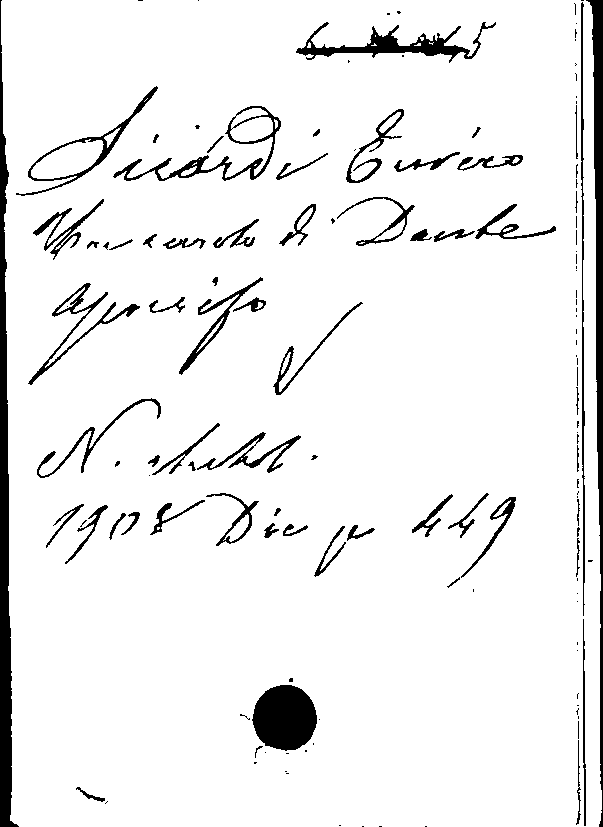 5
Sicardi Enrico
di Dante
apocrifo
N. Antol.
1908 Dic p 449